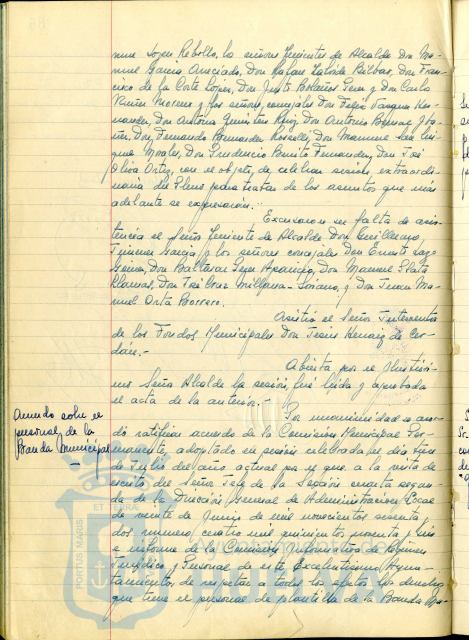 mero Lozen Rebollo, los señores Tenientes de Alcalde Don Ma-
nuel Garcia Aneciado, Don Rafael Bilbao, Don Fran-
cisco de la Corte Lopez, Don Justo Bolaños Gera y Don Carlo
Nuñez Moreno y los señores concejales Don Felix Vazquez Her-
nandez, Don Antonio Quintero Ruiz, Don Antonio Bernal
Don Fernando Bermudez Rosselli, Don Manuel
Morales, Don Prudencio Benito Fernandez, Don José
Oliva Ortiz, con el objeto de celebrar sesión extraordi-
naria del Pleno para tratar de los asuntos que más
adelante se expresarán.-
Excusaron su falta de asis-
tencia el Señor Teniente de Alcalde Don Guillermo
Jimenez Garcia y los señores concejales Don Ernesto Lazo
Don Baltasar Gera Aparicio, Don Manuel Plata
Llamas, Don José Cruz Millana Soriano, y Don Juan Ma-
nuel Orta Borrero.
Asistió el Señor Interventor
de los Fondos Municipales Don Jesús Henaiz de Cer-
dán.-
Abierta por el Ilustrísi-
mo Señor Alcalde la sesión, fué leida y aprobada
el acta de la anterior.-
Acuerdo sobre el
personal de la
Banda Municipal
Por unanimidad se acor-
dó ratificar acuerdo de la Comisión Municipal Per-
manente, adoptado en sesión celebrada el dia
de Julio del año actual por el que, a la vista de
escrito del Señor Jefe de la Sección cuarta segun-
da de la Dirección General de Administracion Local
de veinte de Junio de mil novecientos sesenta y
dos numero cuatro mil quinientos noventa y seis
e informe de la Comisión Informativa de Regimen
Juridico y Personal de este Excelentísimo Ayun-
tamiento, de respetar a todos los efectos los derechos
que tiene el personal de plantilla de la Banda Mu-
ET TERRA
PORTUS MARIS